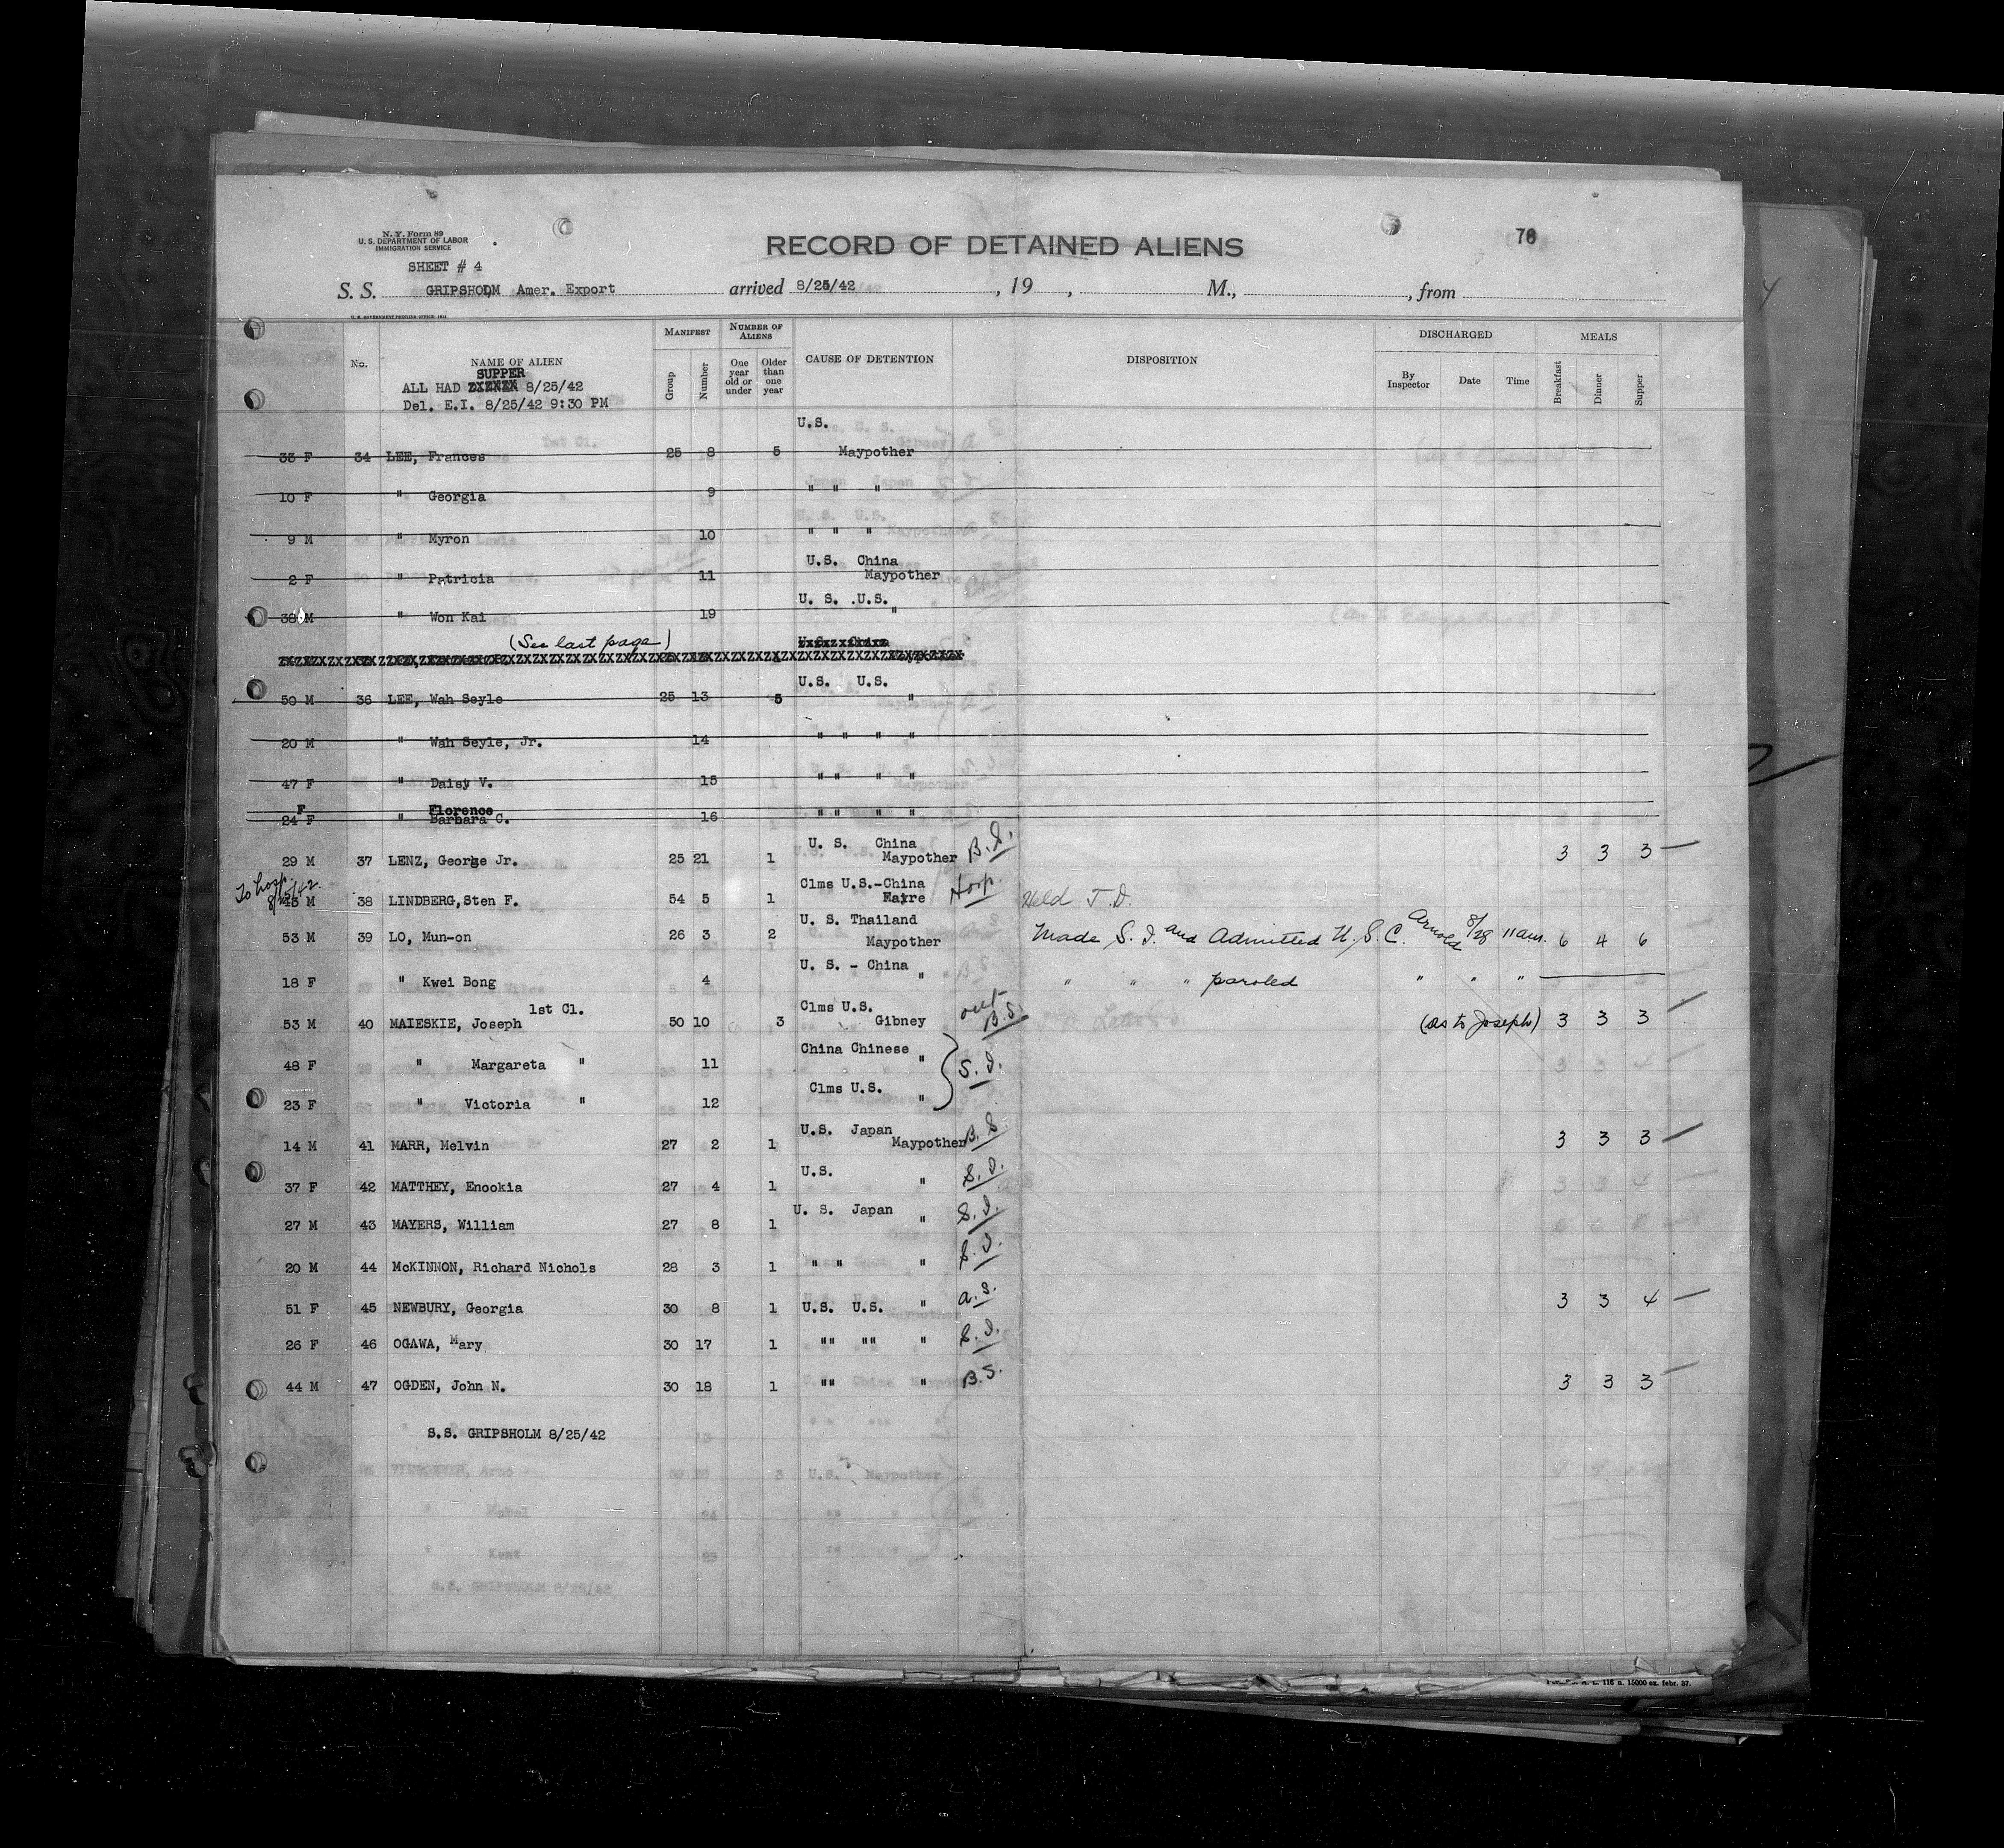 N. Y. Form 89
U. S. DEPARTMENT OF LABOR
IMMIGRATION SERVICE
RECORD OF DETAINED ALIENS
SHEET # 4
S. S. GRIPSHOLM Amer. Export arrived 8/25/42 , 19 , M., , from
No. NAME OF ALIEN MANIFEST Group Number NUMBER OF ALIENS One year old or under Older than one year CAUSE OF DETENTION DISPOSITION DISCHARGED By Inspector Date Time MEALS Breakfast Dinner Supper
SUPPER
ALL HAD 8/25/42
Del. E.I. 8/25/42 9:30 PM
U.S.
33 F 34 LEE, Frances 25 8 5 Maypother
10 F " Georgia 9 " " "
9 M " Myron 10 " " "
U.S. China
2 F " Patricia 11 Maypother
U. S. .U.S.
38 M " Won Kai 19 "
(See last page)
U.S. U.S.
50 M 36 LEE, Wah Seyle 25 13 5 "
20 M " Wah Seyle, Jr. 14 " " " "
47 F " Daisy V. 15 " " " "
F Florence
24 F " Barbara C. 16 " " " "
U. S. China
29 M 37 LENZ, George Jr. 25 21 1 Maypother 3 3 3
To hosp.
Clms U.S.-China
38 LINDBERG,Sten F. 54 5 1 Hosp. Held T.D.
U. S. Thailand
53 M 39 LO, Mun-on 26 3 2 Maypother Made S.I. and Admitted U.S.C. Arnold 8/28 11am. 6 4 6
U. S. - China
18 F " Kwei Bong 4 " " " " paroled " " "
1st Cl. Clms U.S.
53 M 40 MAIESKIE, Joseph 50 10 3 Gibney out B.S. (as to Joseph) 3 3 3
China Chinese
48 F " Margareta " 11 " S.I.
Clms U.S.
23 F " Victoria " 12 "
U.S. Japan
14 M 41 MARR, Melvin 27 2 1 Maypother B.S. 3 3 3
U.S.
37 F 42 MATTHEY, Enookia 27 4 1 " S.I.
U. S. Japan
27 M 43 MAYERS, William 27 8 1 " S.I.
20 M 44 McKINNON, Richard Nichols 28 3 1 " " " S.I.
51 F 45 NEWBURY, Georgia 30 8 1 U.S. U.S. " a.s. 3 3 4
26 F 46 OGAWA, Mary 30 17 1 "" "" " S.I.
44 M 47 OGDEN, John N. 30 18 1 "" " B.S. 3 3 3
S.S. GRIPSHOLM 8/25/42